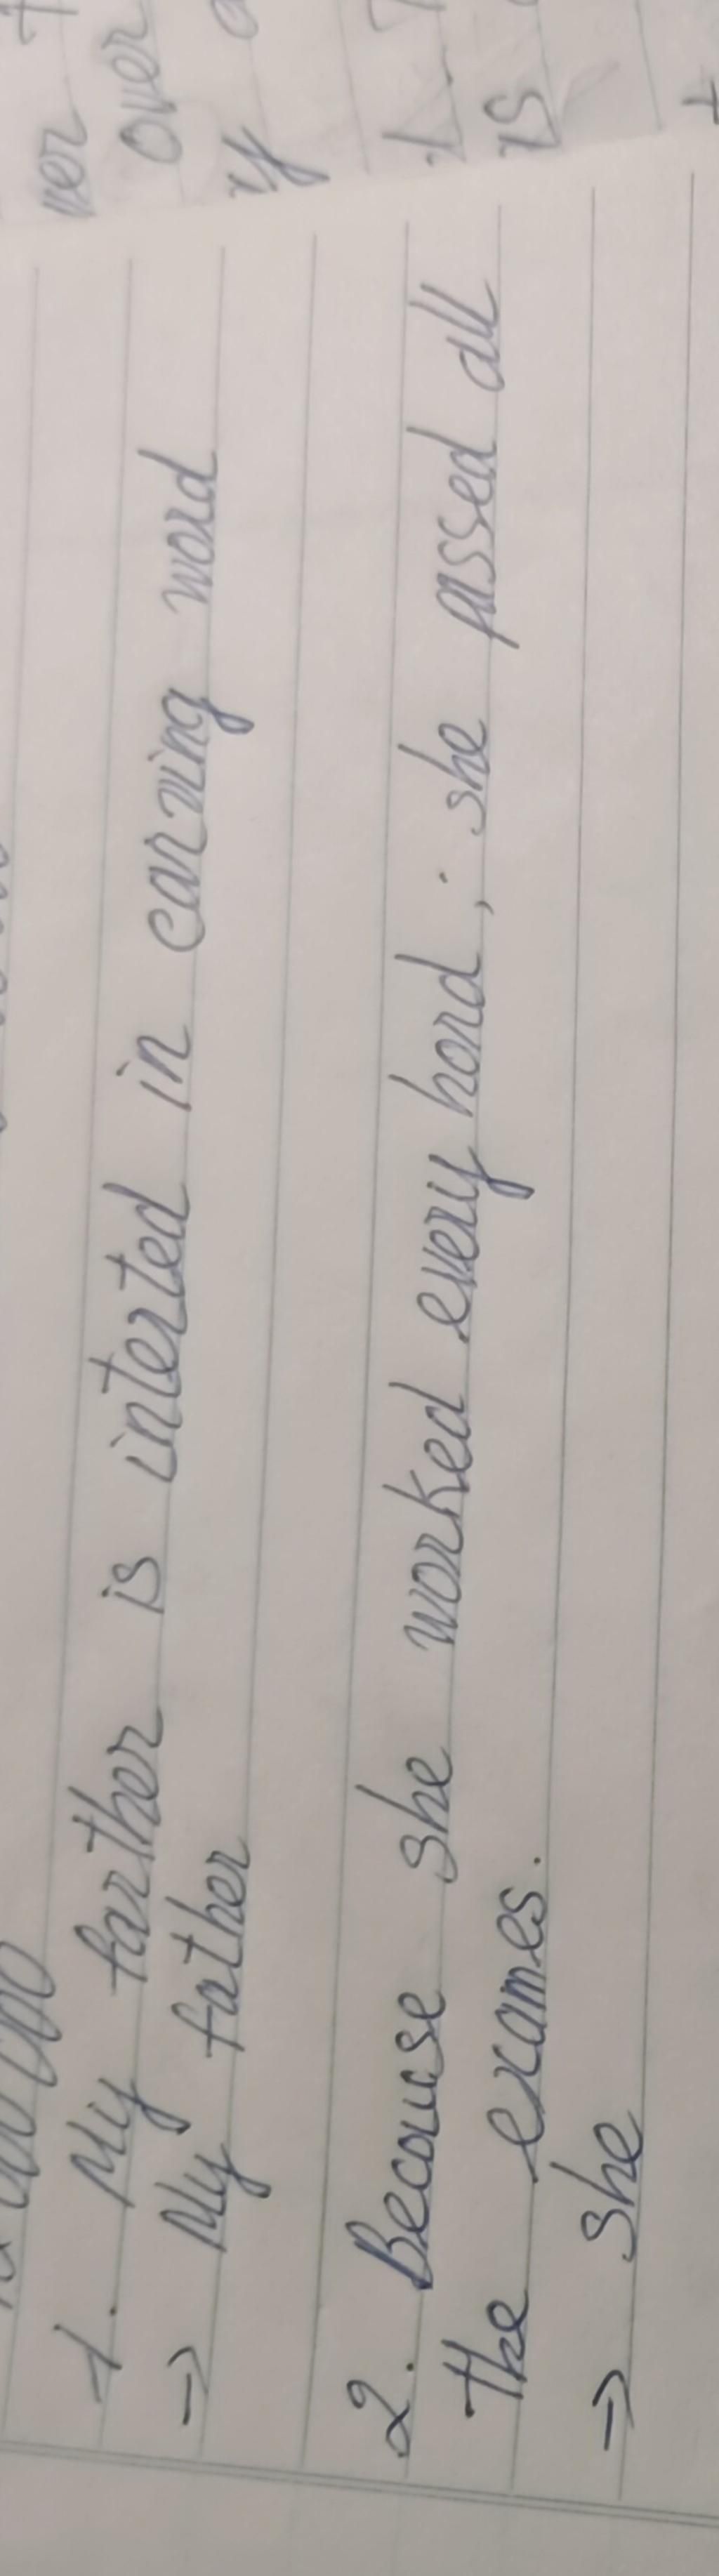 1. My farther is interted in carving word
→ My father
2. Becouse she worked every hord, she passed all
the exames.
→ she